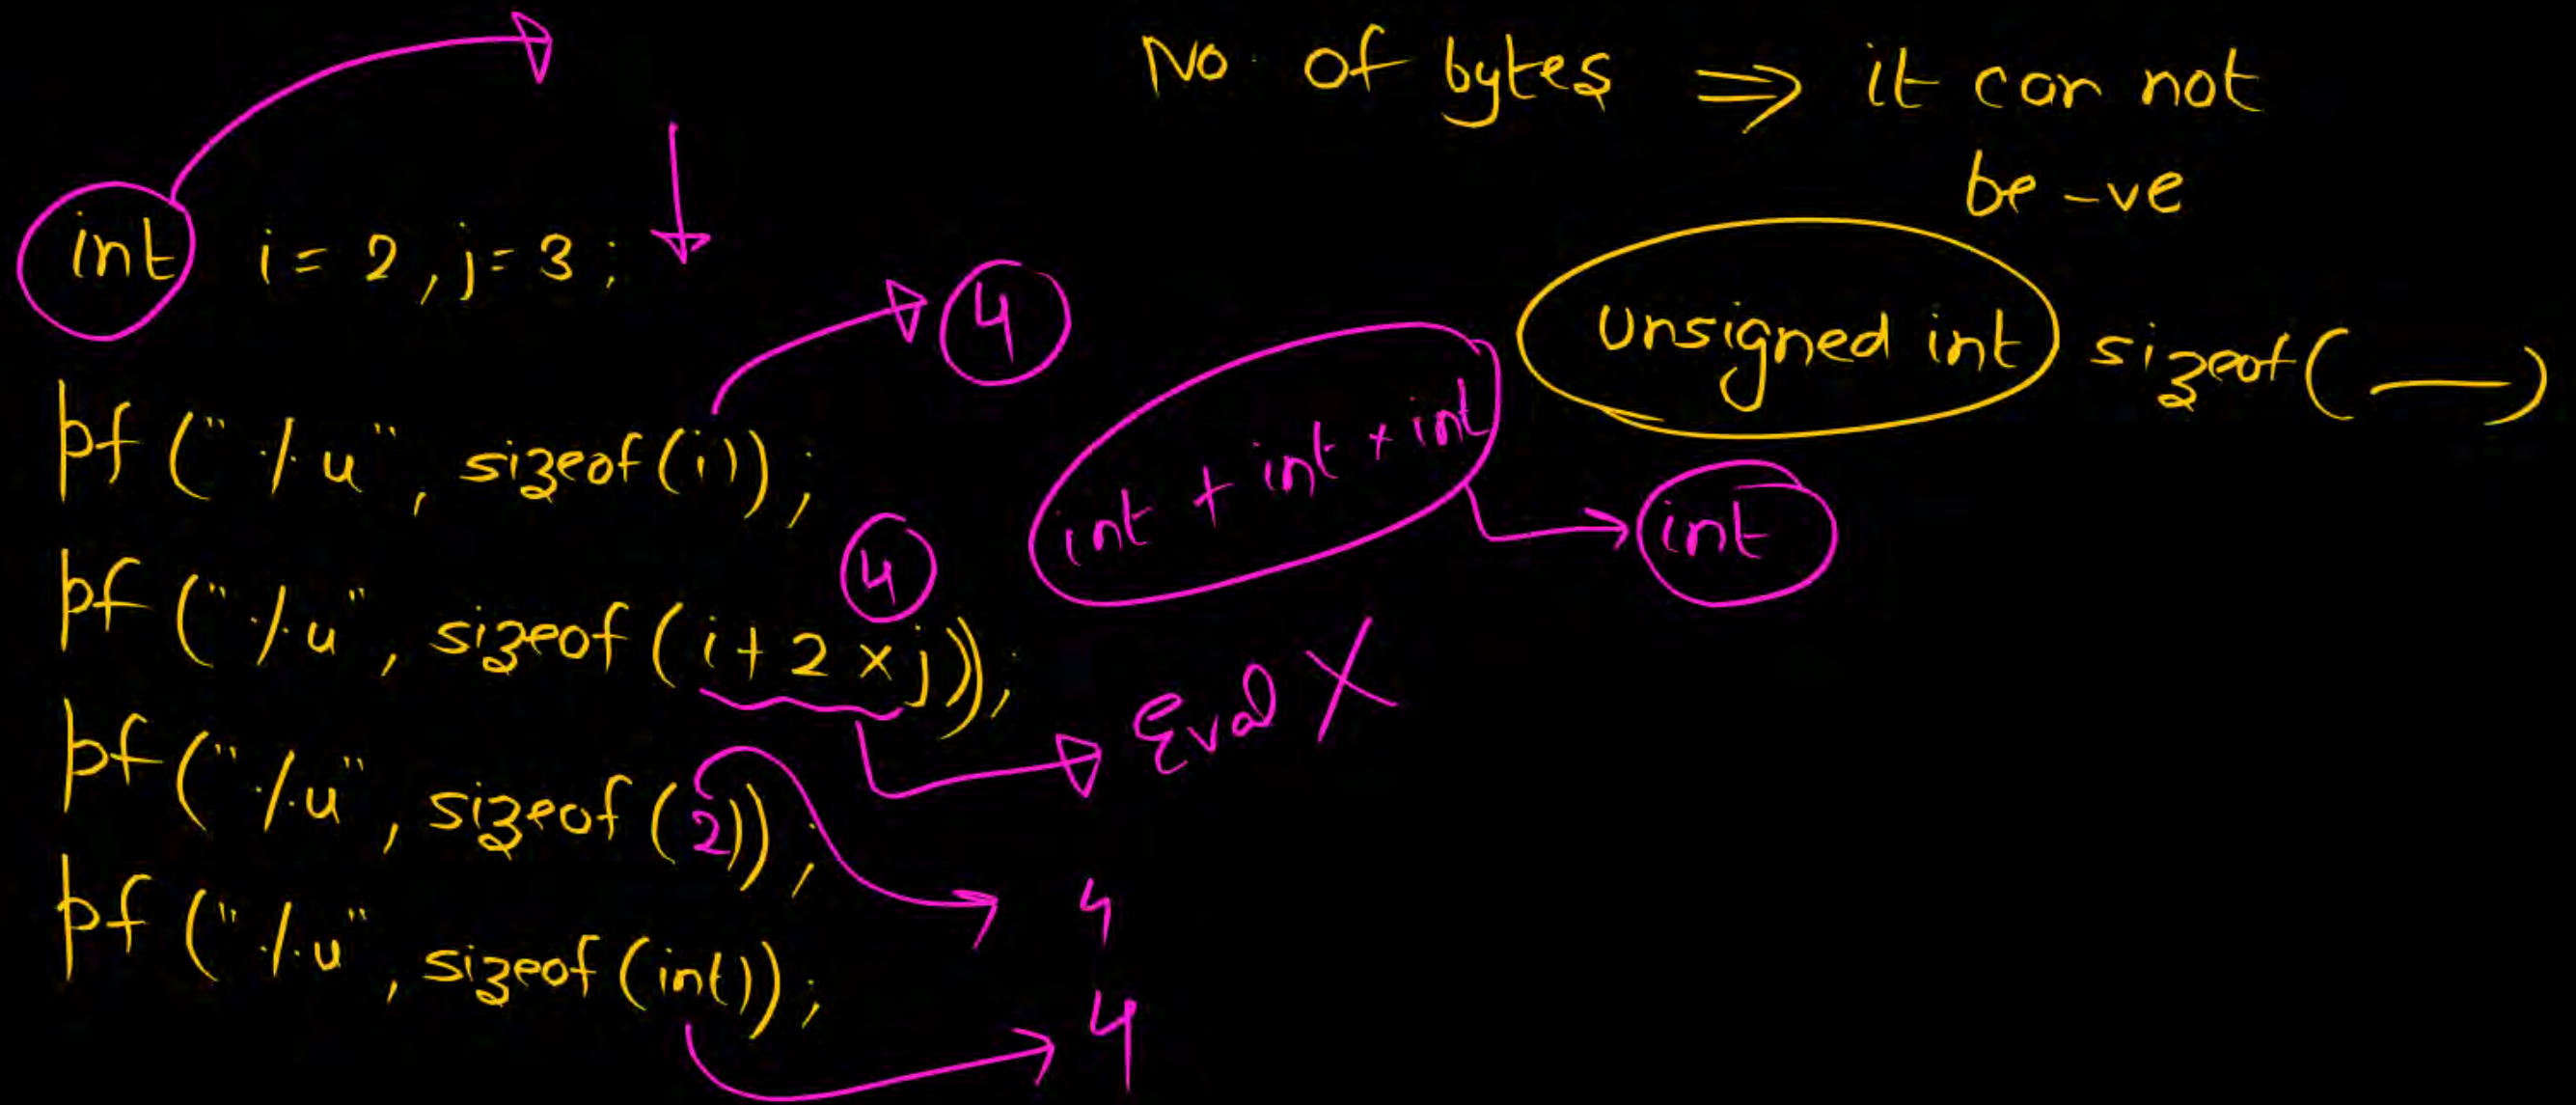 No. of bytes ⇒ it can not
be -ve
int i = 2, j = 3;
unsigned int sizeof(__)
4
pf ("%u", sizeof(i));
int + int + int → int
4
pf ("%u", sizeof(i + 2 × j));
Eval X
pf ("%u", sizeof(2));
4
pf ("%u", sizeof(int));
4